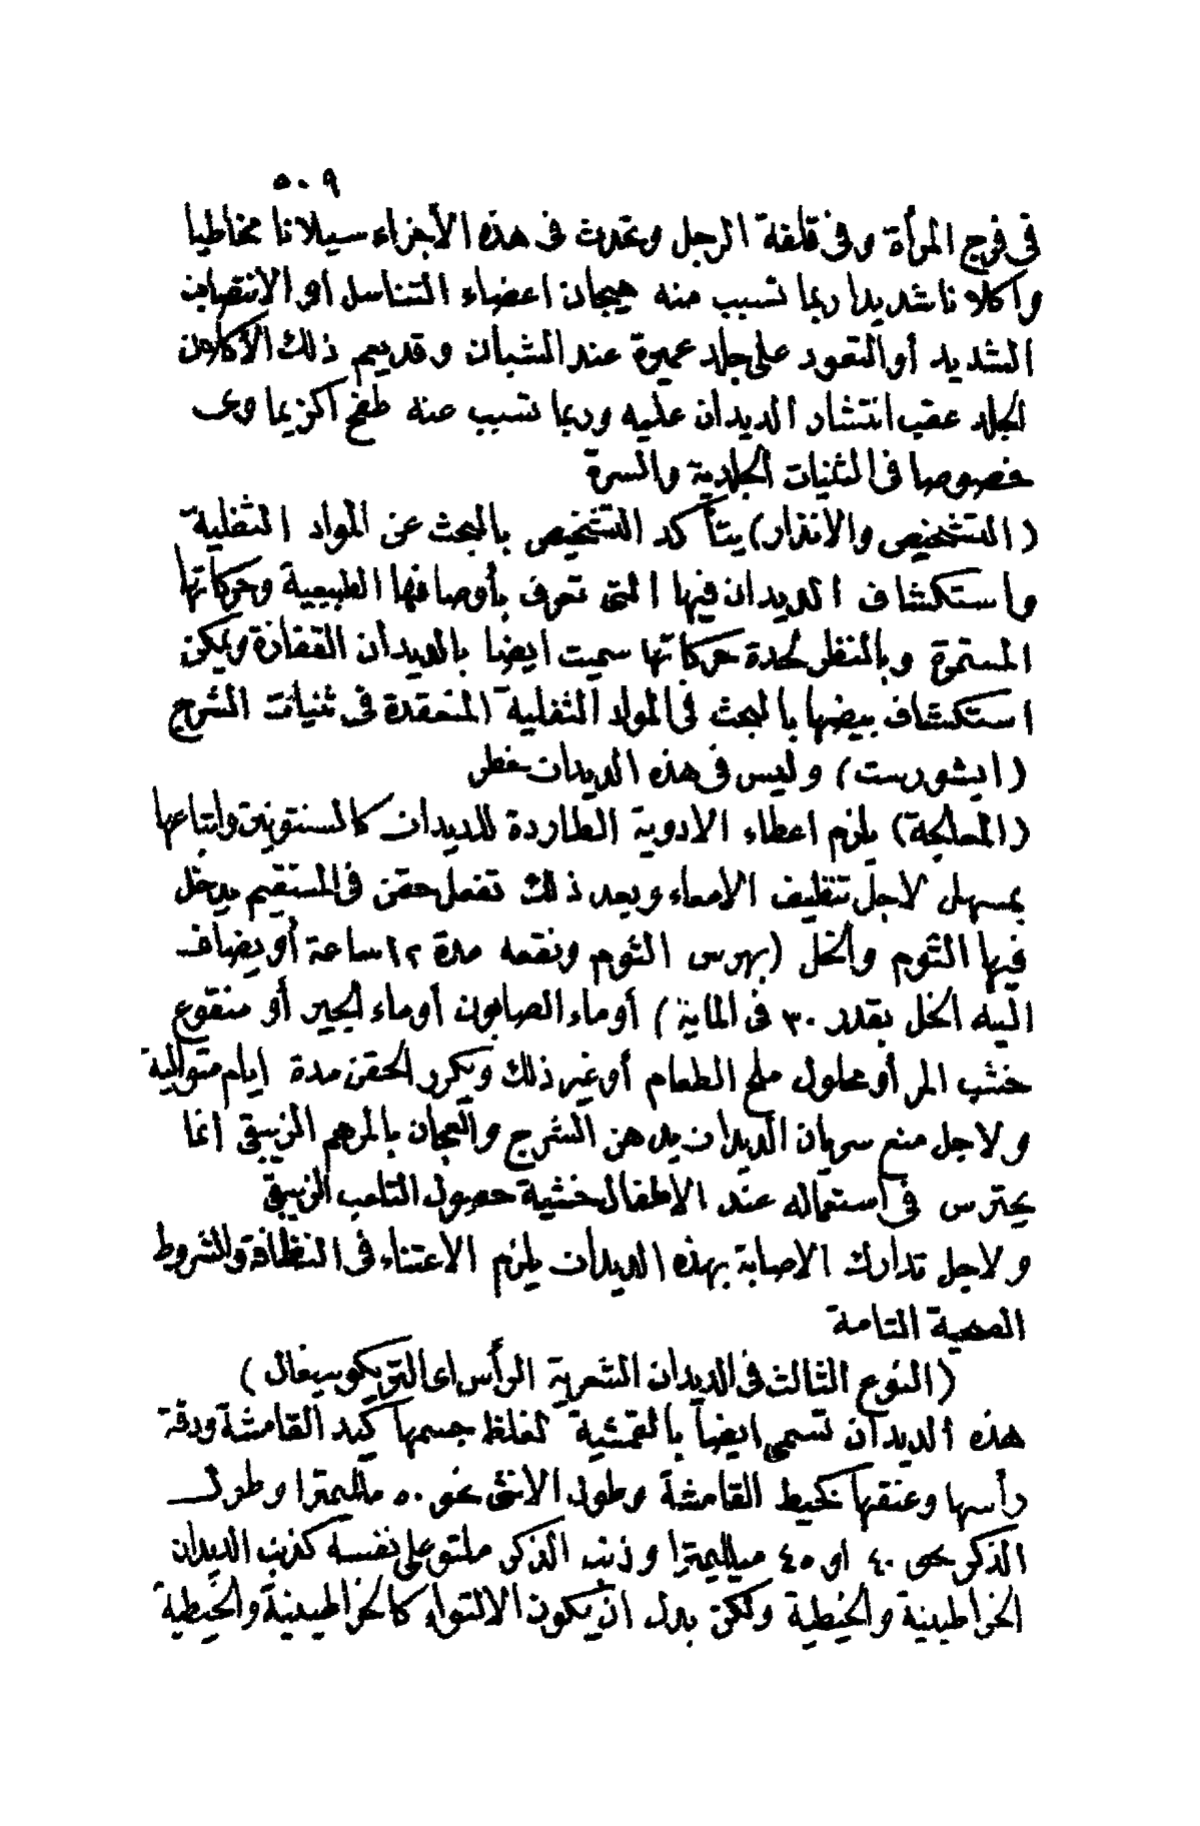 ٥٠٩
فى فرج المرأة وفى قلفة الرجل وتحدث فى هذه الأجزاء سيلانا مخاطيا
وأكلانا شديدا ربما تسبب منه هيجان اعضاء التناسل او الانتصاب
الشديد أوالتعود على جلد عميرة عند الشبان وقد يعم ذلك الأكلان
الجلد عقب انتشار الديدان عليه وربما تسبب عنه طفح اكزيماوى
خصوصا فى الثنيات الجلدية والسرة
(التشخيص والانذار) يتأكد التشخيص بالبحث عن المواد الثفلية
واستكشاف الديدان فيها التى تعرف بأوصافها الطبيعية وحركاتها
المستمرة وبالنظر لحدة حركاتها سميت ايضا بالديدان القفازة ويمكن
استكشاف بيضها بالبحث فى المواد الثفلية المنعقدة فى ثنيات الشرج
(ايشورست) وليس فى هذه الديدان خطر
(المعالجة) يلزم اعطاء الادوية الطاردة للديدان كالسنتونين واتباعها
بمسهل لاجل تنظيف الامعاء وبعد ذلك تفعل حقن فى المستقيم يدخل
فيها الثوم والخل (بهرس الثوم ونقعه مدة ١٢ ساعة أو يضاف
اليه الخل بقدر ٣٠ فى الماية) أوماء الصابون أوماء الجير أو منقوع
خشب المر أو محلول ملح الطعام أو غير ذلك ويكرر الحقن مدة ايام متوالية
ولاجل منع سريان الديدان يدهن الشرج والعجان بالمرهم الزيبقى انما
يحترس فى استعماله عند الاطفال خشية حصول التلعب الزيبقى
ولاجل تدارك الاصابة بهذه الديدان يلزم الاعتناء فى النظافة والشروط
الصحية التامة
(النوع الثالث فى الديدان الشعرية الرأس اى التريكوسيفال)
هذه الديدان تسمى ايضا بالقمشية لغلظ جسمها كيد القامشة ودقة
رأسها وعنقها كخيط القامشة وطول الانثى نحو ٥٠ ملليمترا وطول
الذكر نحو ٤٠ او ٤٥ ميلليمترا وذنب الذكر ملتو على نفسه كذنب الديدان
الخراطينية والخيطية ولكن بدل ان يكون الالتواء كالخراطينية والخيطية